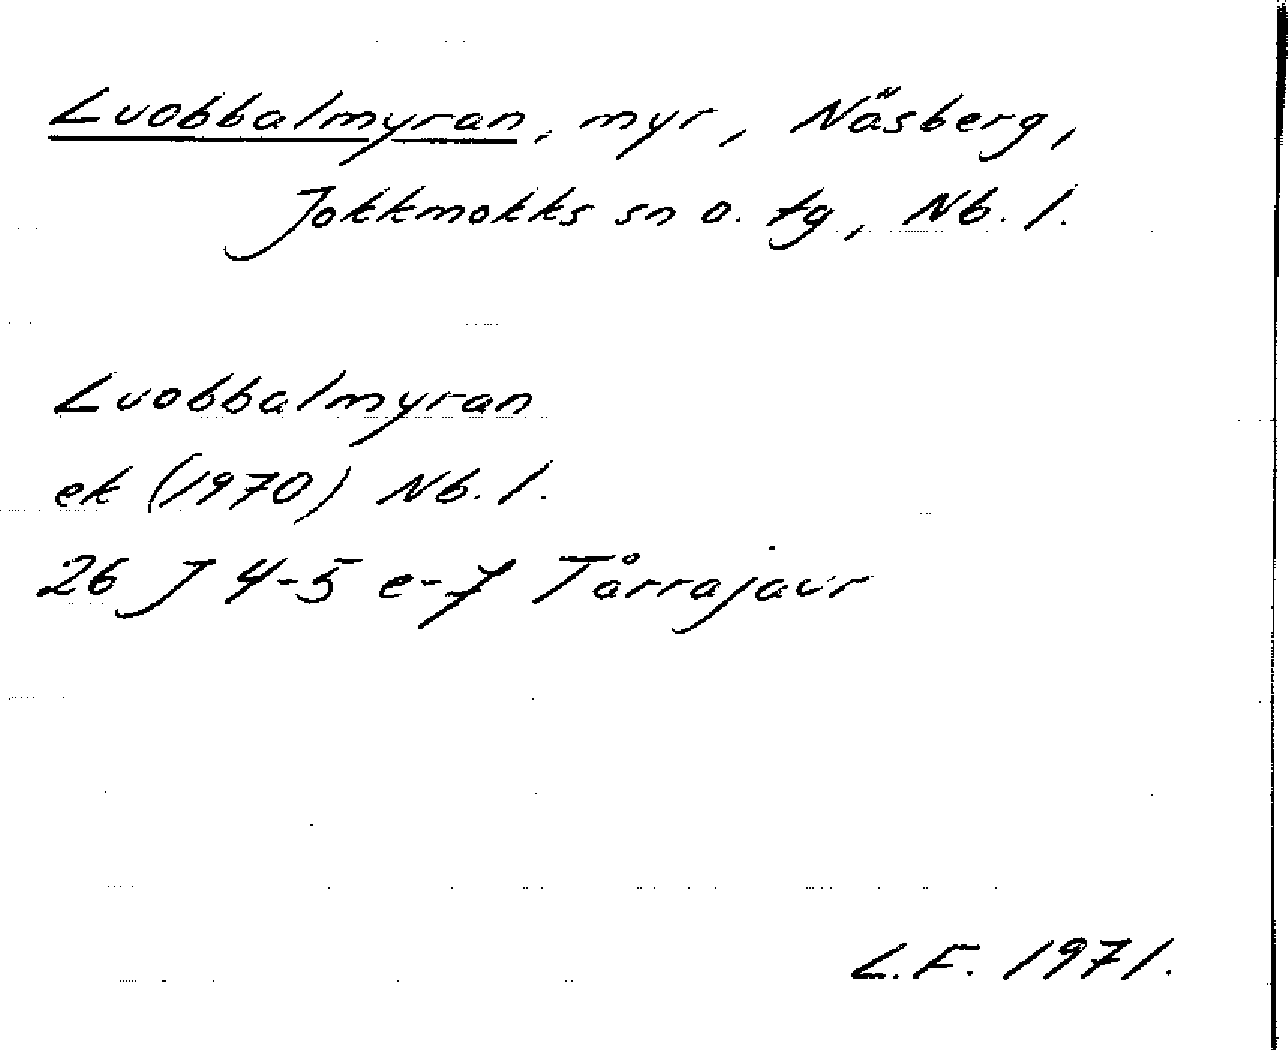 Luobbalmyran, myr, Näsberg,
Jokkmokks sn o. tg, Nb. l.
Luobbalmyran
ek (1970) Nb. l.
26 J 4-5 e-f Tårrajaur
L.F. 1971.